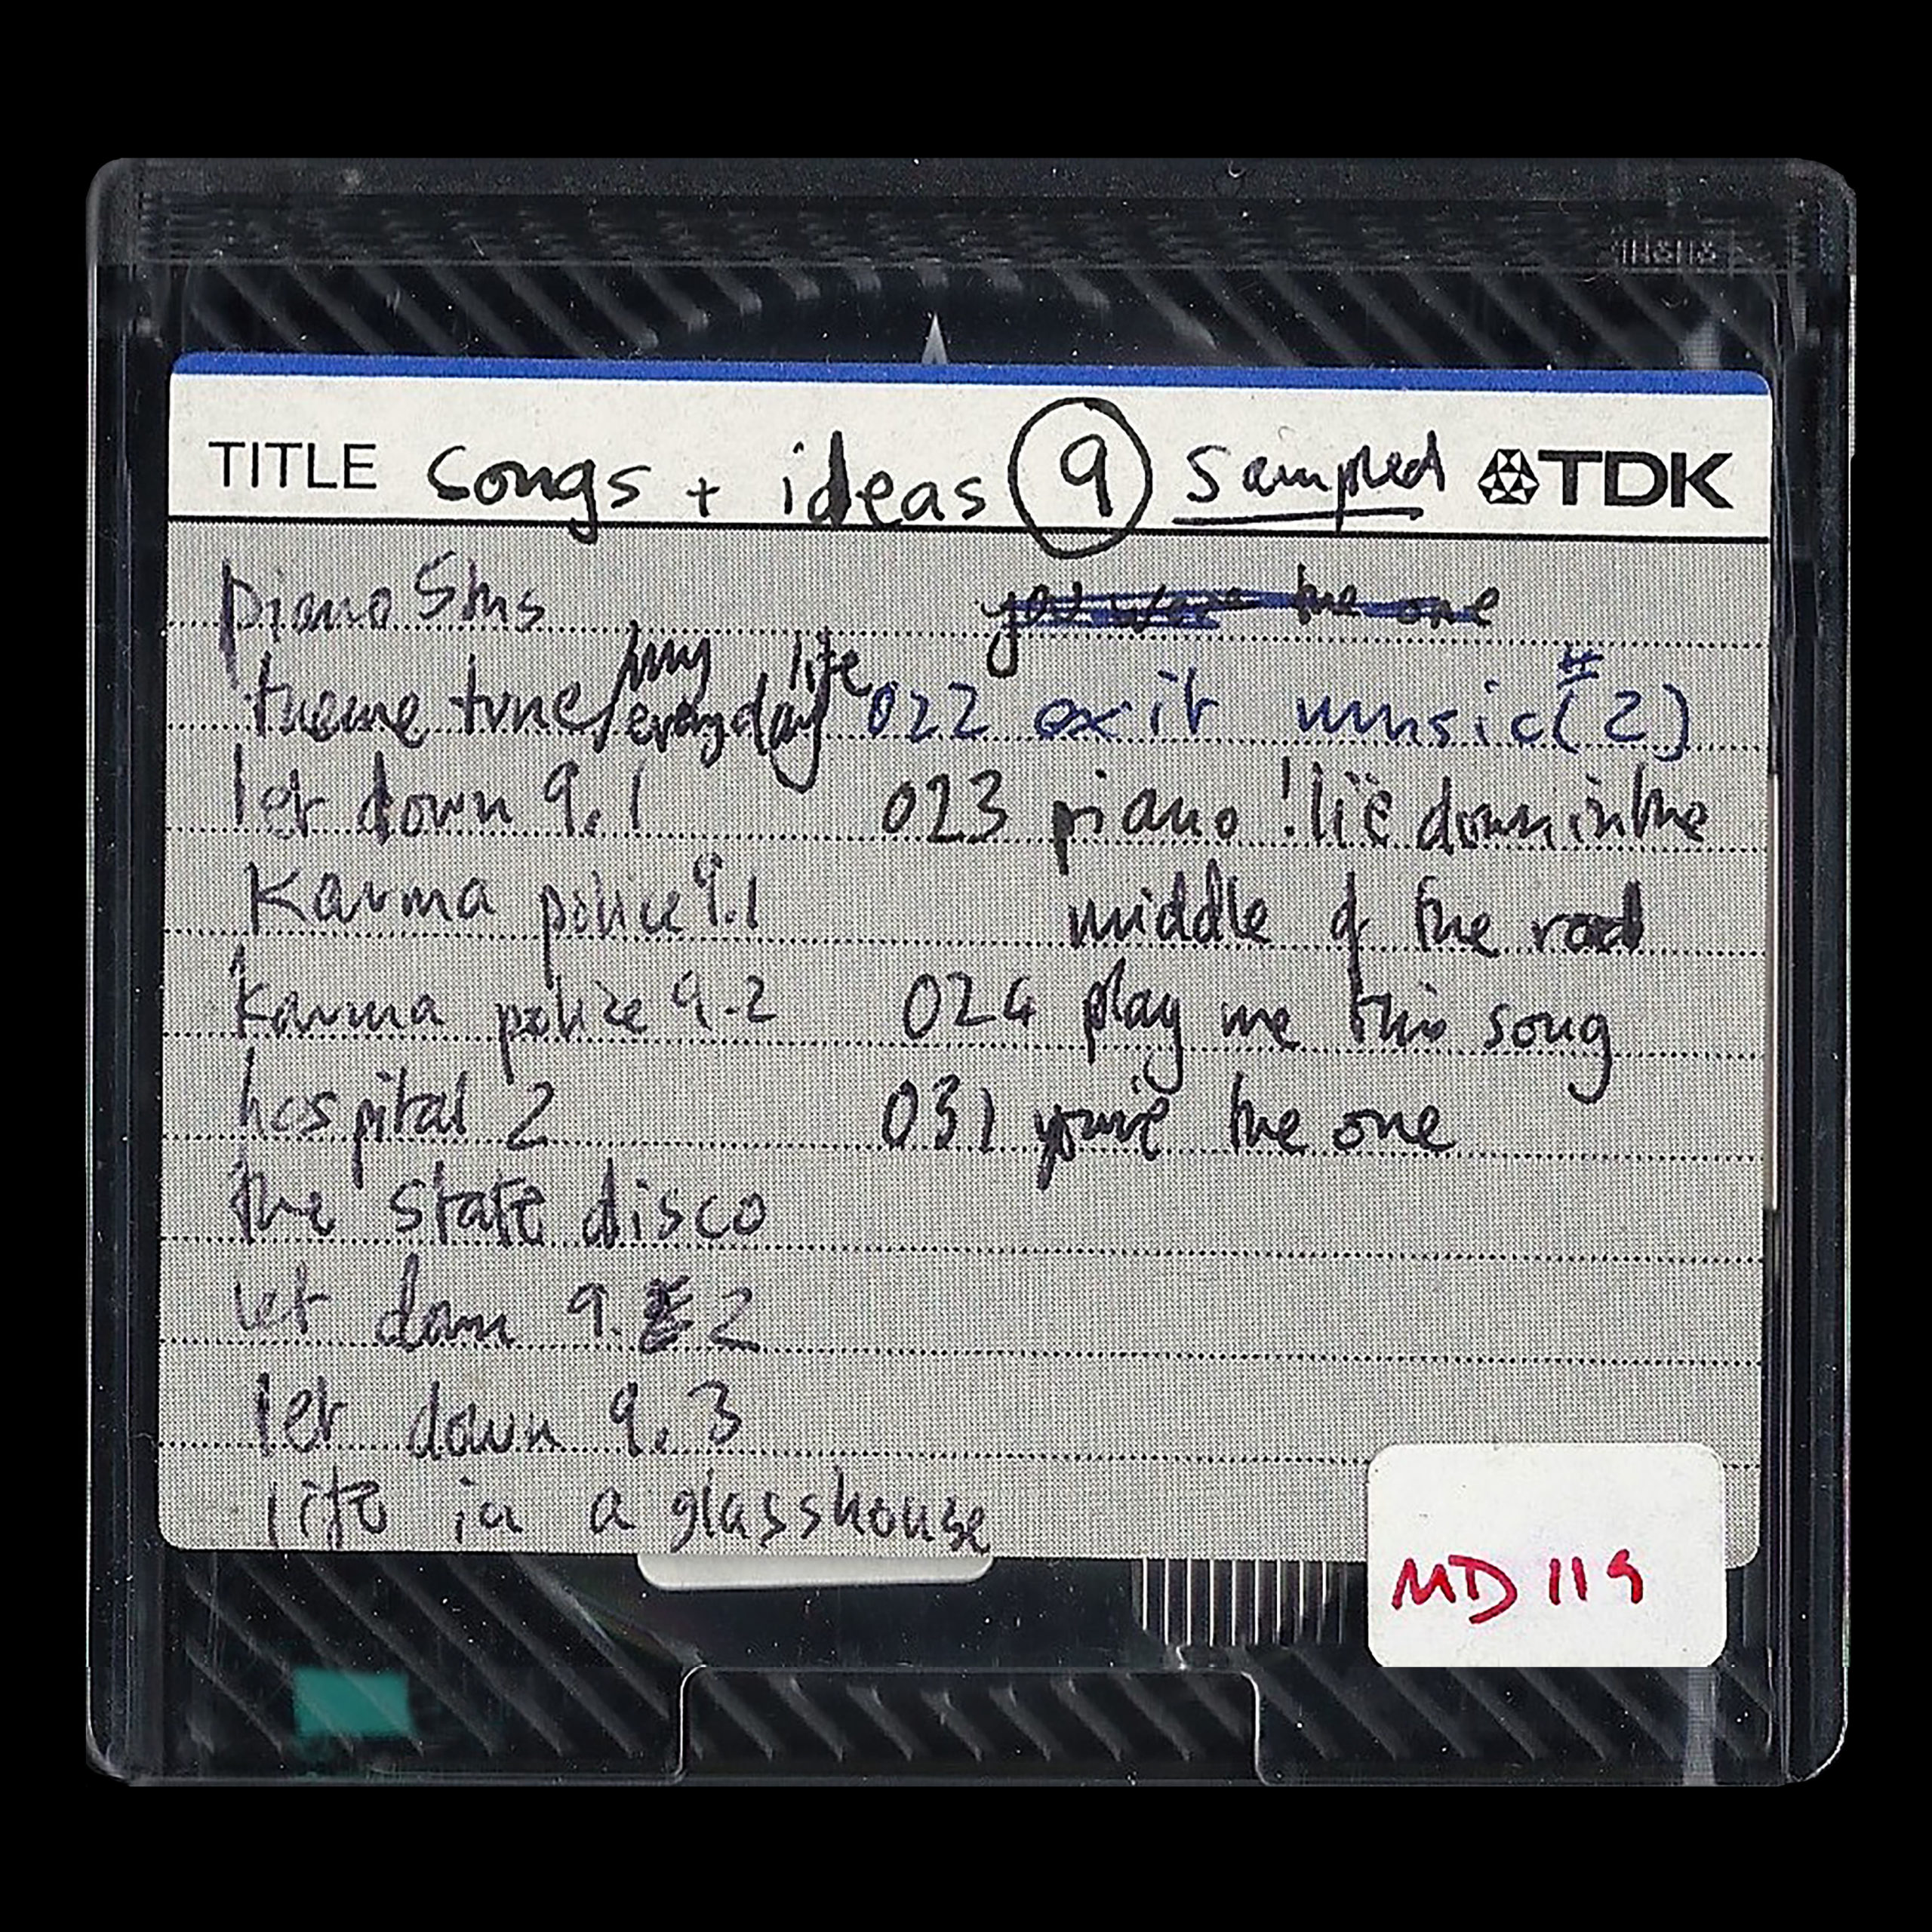 TITLE songs + ideas 9 sampled TDK
piano 5ths
theme tune/my everyday life
let down 9.1
karma police 9.1
karma police 9.2
hospital 2
the state disco
let down 9.2
let down 9.3
life in a glasshouse
the one
022 exit music #(2)
023 piano ! lie down in the
middle of the road
024 play me this song
031 you're the one
MD 119